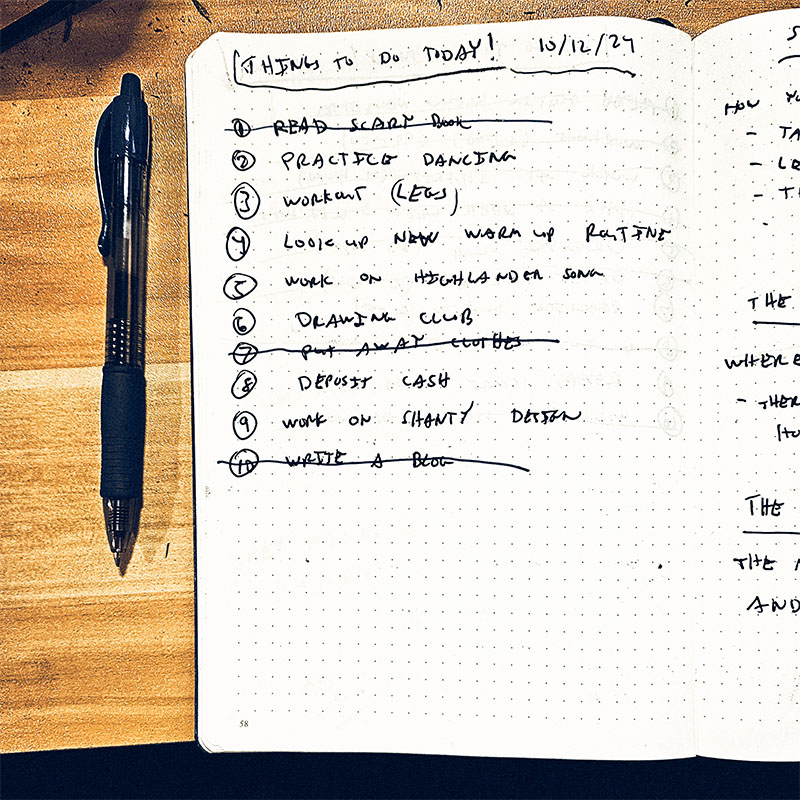 THINGS TO DO TODAY! 10/12/24
1 READ SCARY BOOK
2 PRACTICE DANCING
3 WORKOUT (LEGS)
4 LOOK UP NEW WARM UP ROUTINE
5 WORK ON HIGHLANDER SONG
6 DRAWING CLUB
7 PUT AWAY CLOTHES
8 DEPOSIT CASH
9 WORK ON SHANTY DESIGN
10 WRITE A BLOG
58
S
HOW YO
- TA
- LE
- TH
THE
WHERE
- THER
THE
THE
AND